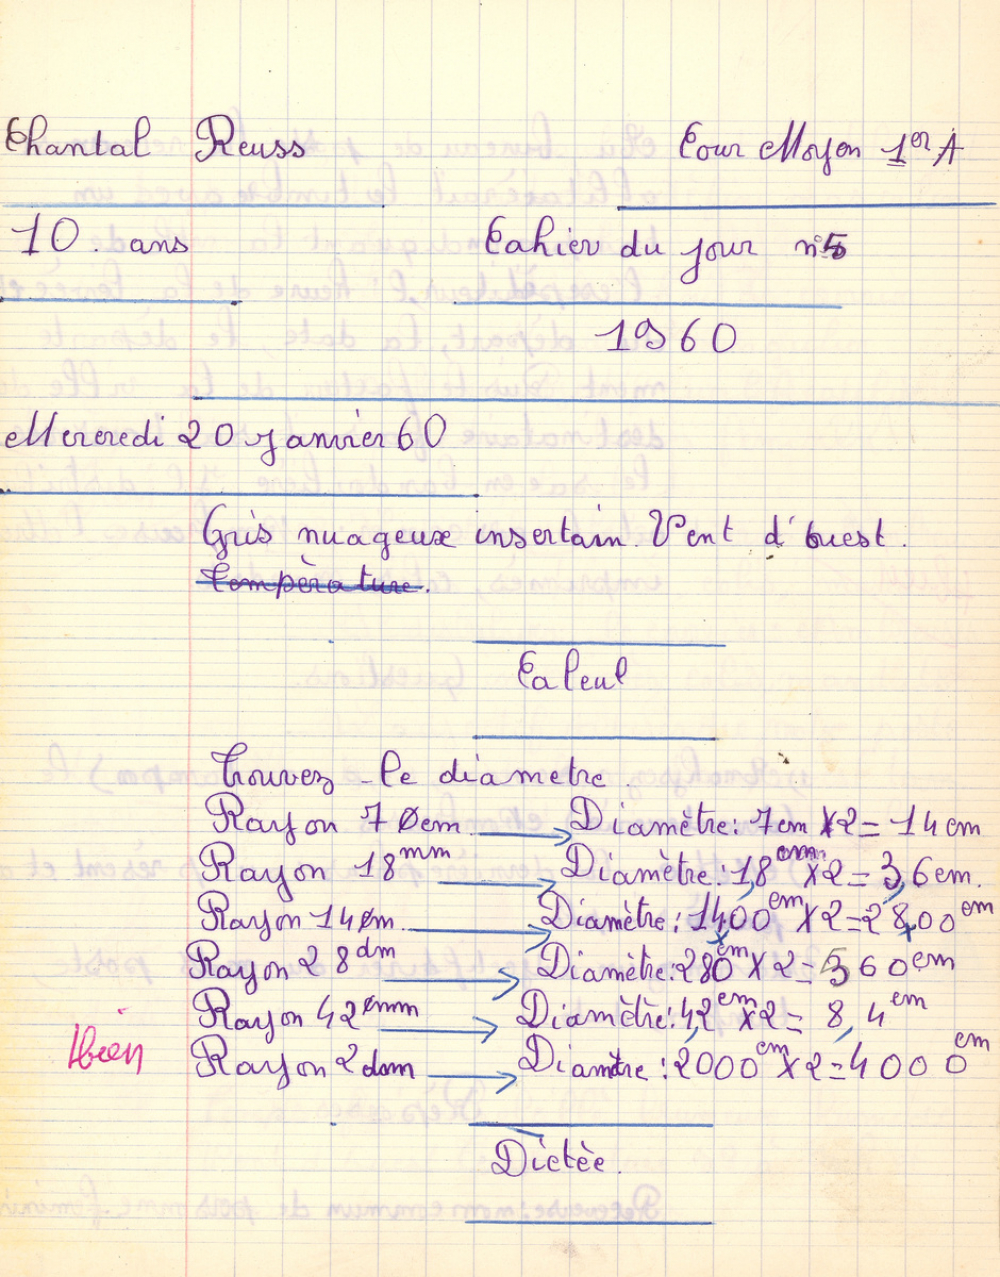 Chantal Reuss Cour Moyen 1er A
10 ans Cahier du jour n°5
1960
Mercredi 20 janvier 60
Gris nuageux insertain. Vent d'ouest.
Température.
Calcul
Trouvez le diametre.
Rayon 7 cm Diamètre: 7cm X2= 14cm
Rayon 18mm Diamètre: 1,8cm X2= 3,6cm.
Rayon 14 m Diamètre: 1400cm X2=2800cm
Rayon 28dm Diamètre: 280cm X2= 560cm
Rayon 42mm Diamètre: 4,2cm X2= 8,4cm
bien Rayon 2dam Diamètre: 2000cm X2=4000cm
Dictée.